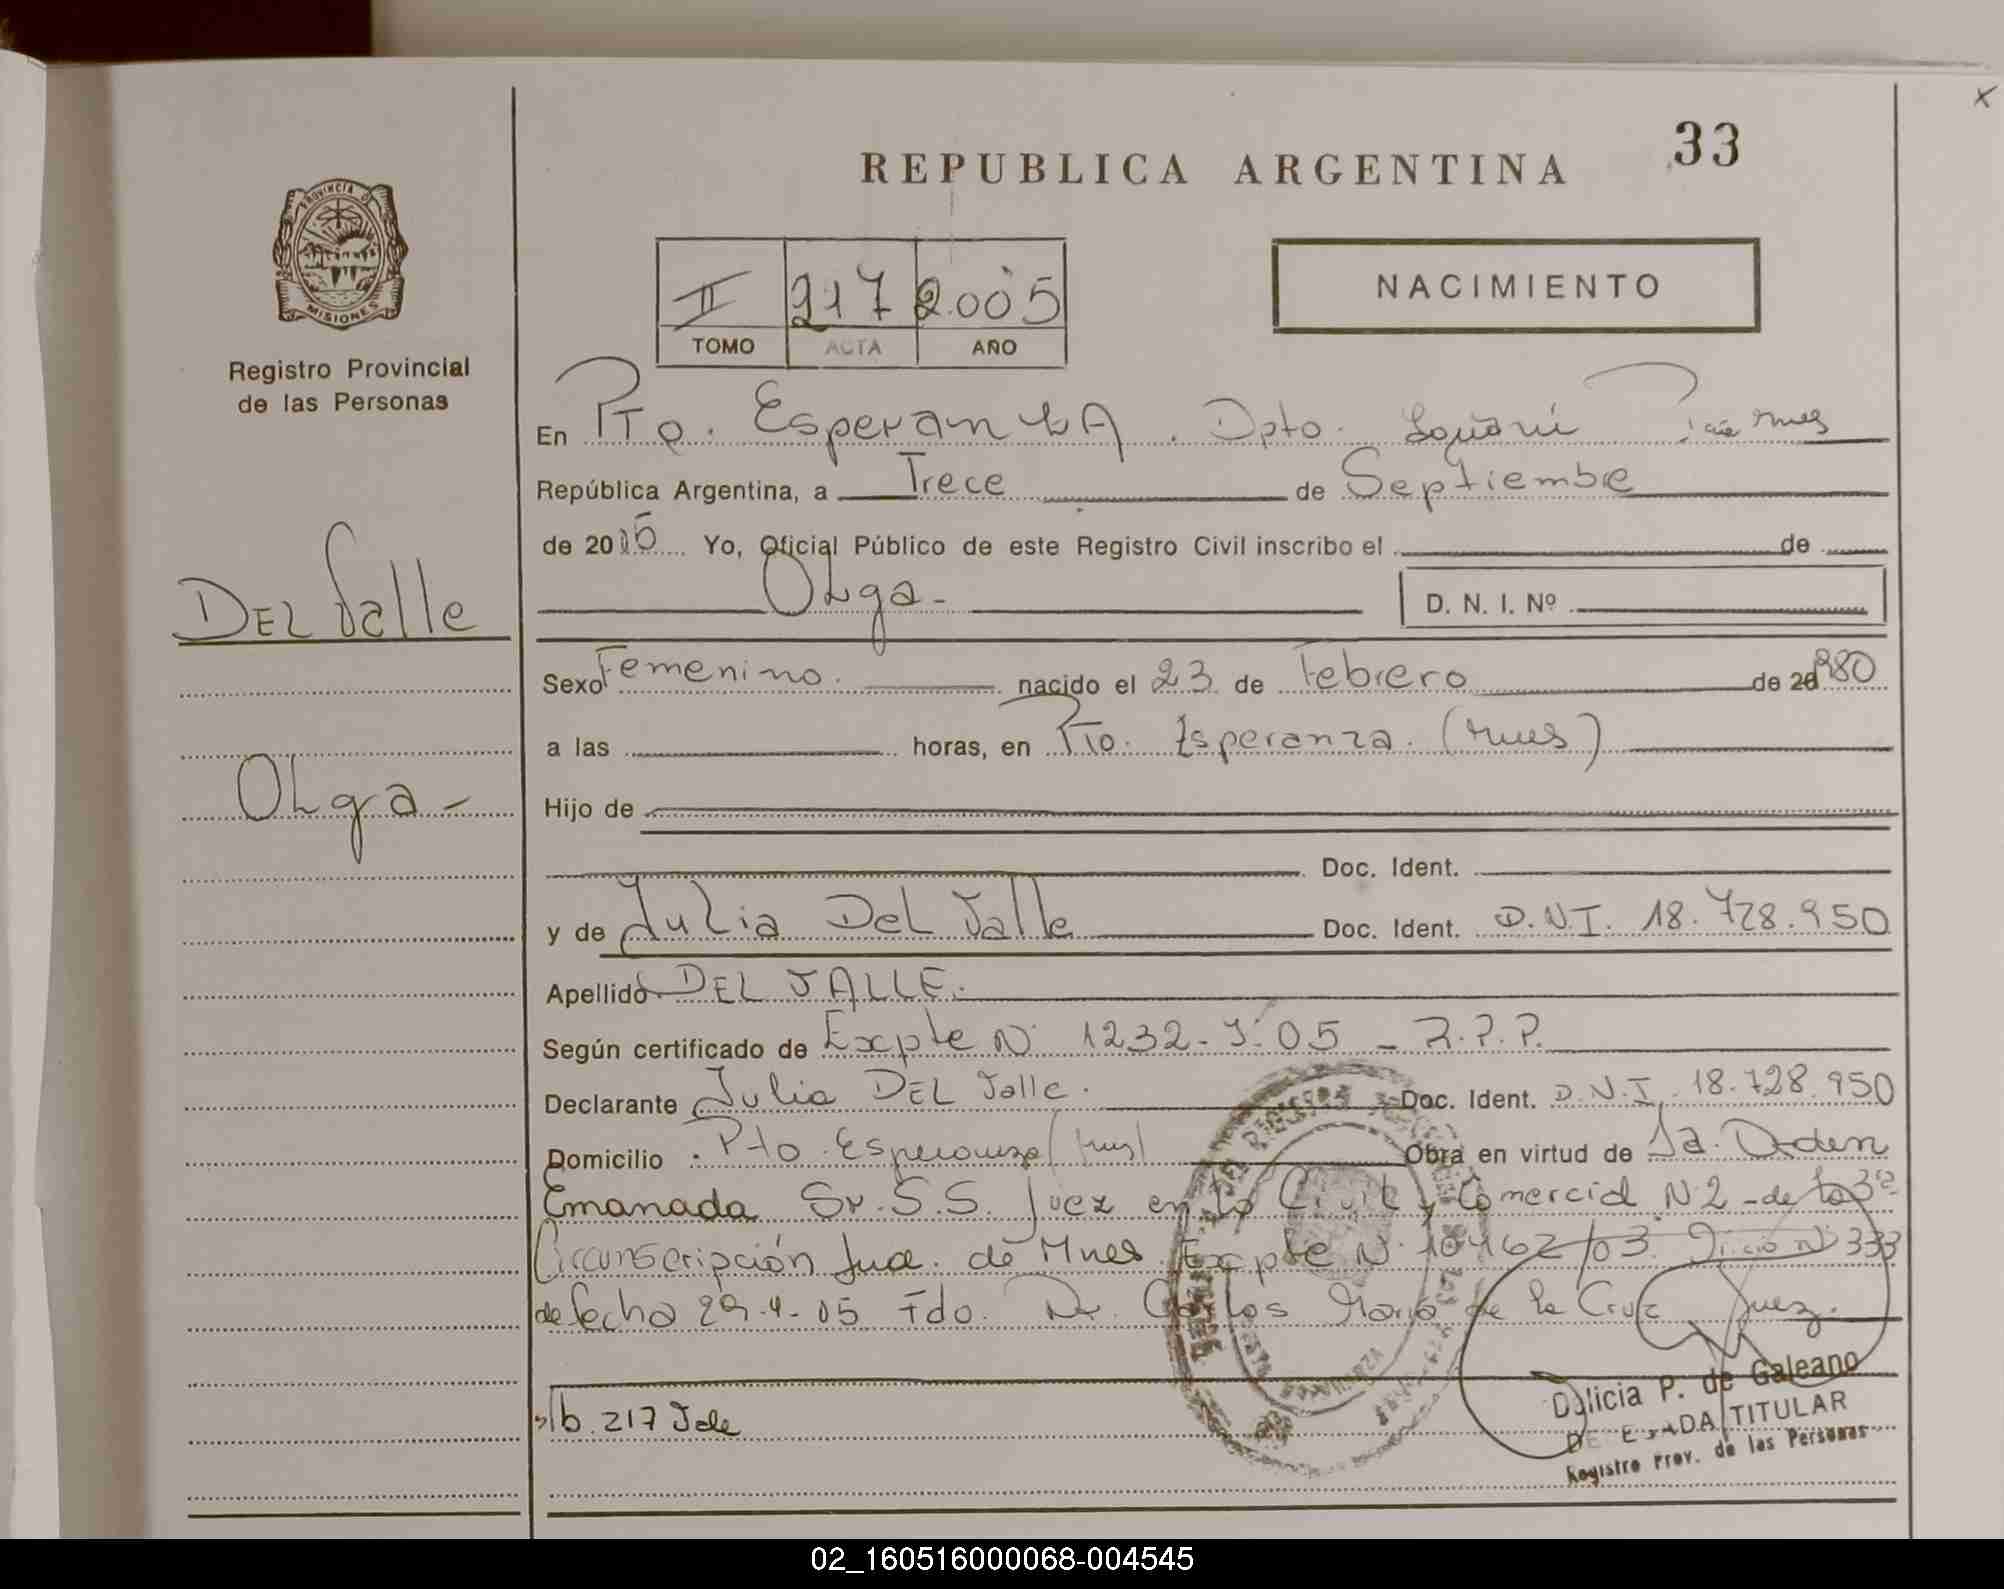 X
33
REPUBLICA ARGENTINA
PROVINCIA DE
MISIONES
Registro Provincial
de las Personas
NACIMIENTO
II 217 2.005
TOMO ACTA AÑO
En Pto. Esperanza. Dpto.
República Argentina, a Trece de Septiembre
de 20 Yo, Oficial Público de este Registro Civil inscribo el de
Olga- D. N. I. Nº
DEL Valle
Sexo Femenino. nacido el 23 de Febrero de 980
a las horas, en Pto. Esperanza. (Mnes)
Olga-
Hijo de
Doc. Ident.
y de Julia Del Valle Doc. Ident. D.N.I. 18.728.950
Apellido DEL VALLE.
Según certificado de Excpte Nº 1232-J-05 -
Declarante Julia DEL Valle. Doc. Ident. D.N.I. 18.728.950
Domicilio Pto Esperanza (Mnes) Obra en virtud de La Orden
Emanada Sr. S.S. Juez en lo Civil y Comercial Nº2 -de la 3ra
Circunscripción Jud. de Mnes Excpte Nº /03. Oficio Nº 333
de fecha 29-4-05 Fdo. Dr. Carlos María de la Cruz Juez.
217
Dilicia P. de Galeano
DELEGADA TITULAR
Registro Prov. de las Personas
02_160516000068-004545